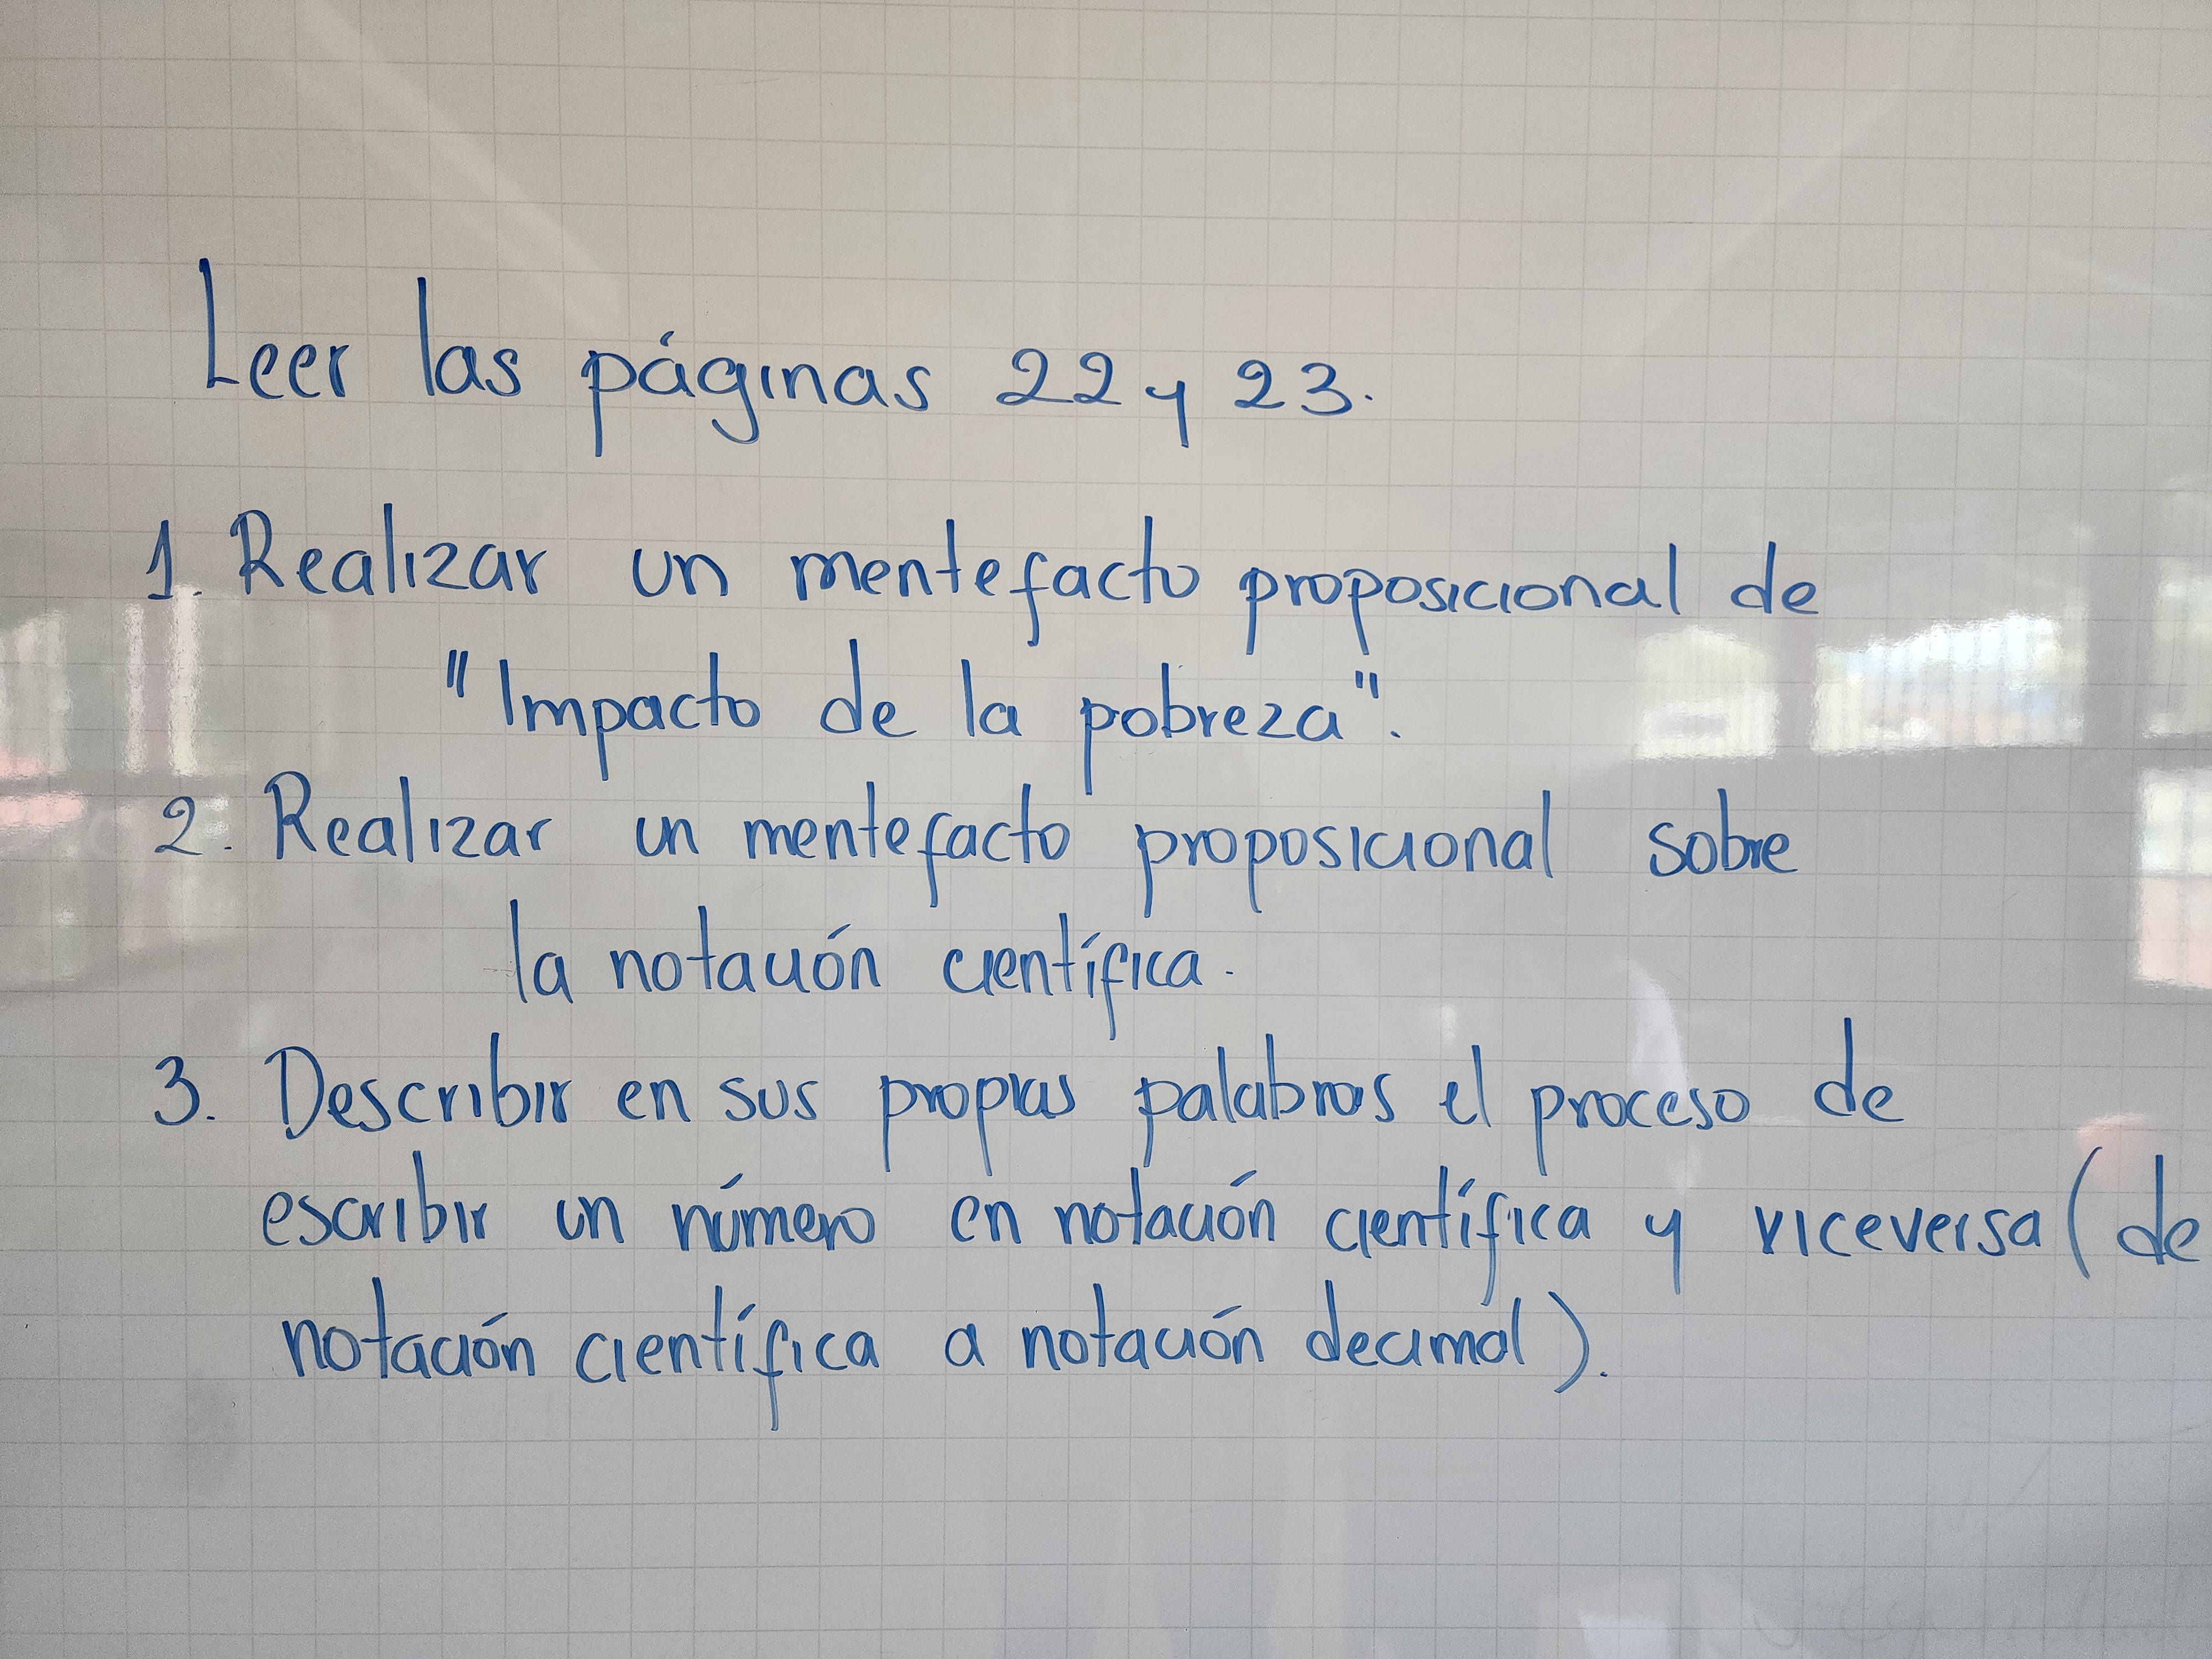 Leer las páginas 22 y 23.
1. Realizar un mentefacto proposicional de
"Impacto de la pobreza".
2. Realizar un mentefacto proposicional sobre
la notación científica.
3. Describir en sus propias palabras el proceso de
escribir un número en notación científica y viceversa (de
notación científica a notación decimal).